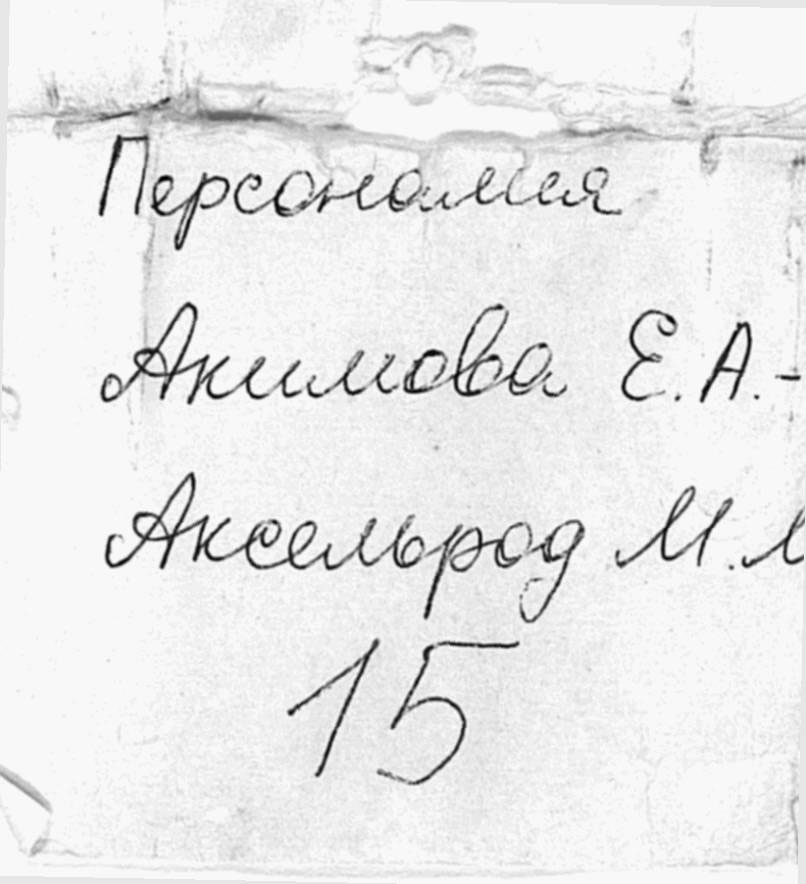 Персоналия
Акимова Е.А.-
Аксельрод М.М
15